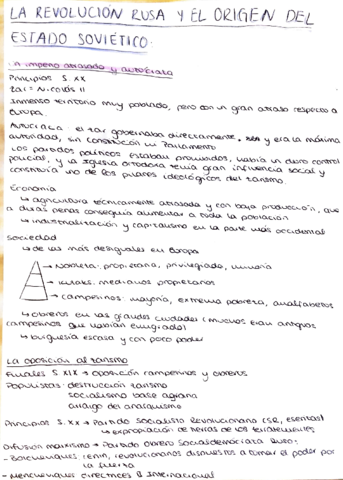 LA REVOLUCIÓN RUSA Y EL ORIGEN DEL
ESTADO SOVIÉTICO.
Un imperio atrasado y autócrata
Principios S. XX
zar = Nicolás II
Inmenso territorio muy poblado, pero con un gran atraso respecto a
Europa.
Autocracia el zar gobernaba directamente, y era la máxima
autoridad, sin constitución ni Parlamento
Los partidos políticos estaban prohibidos, había un duro control
policial, y la Iglesia ortodoxa tenía gran influencia social y
constituía uno de los pilares ideológicos del zarismo
Economía
↳ agricultura técnicamente atrasada y con baja producción, que
a duras penas conseguía alimentar a toda la población
↳ industrialización y capitalismo en la parte más occidental
Sociedad
↳ de las más desiguales en Europa
→ Nobleza: propietaria, privilegiada, minoría
→ kulaks: medianos propietarios
→ campesinos: mayoría, extrema pobreza, analfabetos
↳ obreros en las grandes ciudades (muchos eran antiguos
campesinos que habían emigrado)
↳ burguesía escasa y con poco poder
La oposición al zarismo
Finales S. XIX → oposición campesinos y obreros
Populistas: destrucción zarismo
socialismo base agraria
arraigo del anarquismo
Principios S. XX → Partido Socialista Revolucionario (SR, eseritas)
↳ expropiación de tierras de los terratenientes
Difusión marxismo → Partido Obrero Socialdemócrata Ruso:
- Bolcheviques: Lenin, revolucionarios dispuestos a tomar el poder por
la fuerza
- Mencheviques: directrices II Internacional